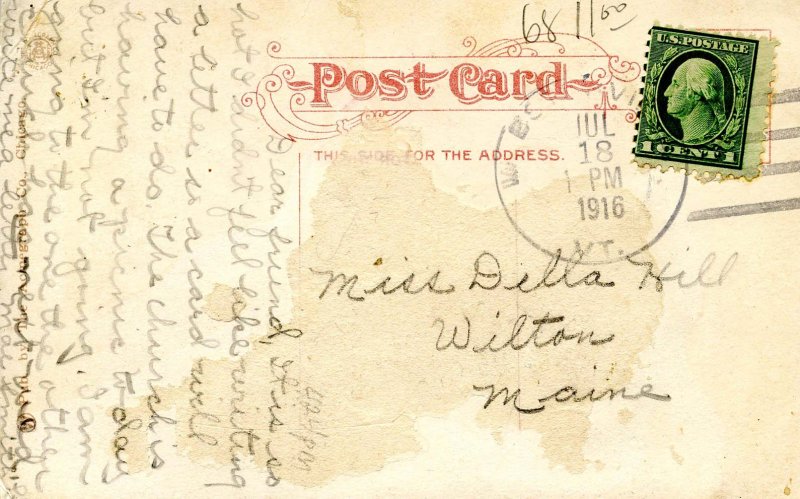 68 11 00
U.S. POSTAGE
1 CENT 1
Post Card
THIS SIDE FOR THE ADDRESS.
JUL
18
1 PM
1916
VT.
Miss Della Hill
Wilton
Maine
Dear friend, It is so
hot I didn't feel like writing
a letter so a card will
have to do. The church is
having a picnic to-day
but I'm not going. I am
going to the one the other
church
write me a letter
Co., Chicago.